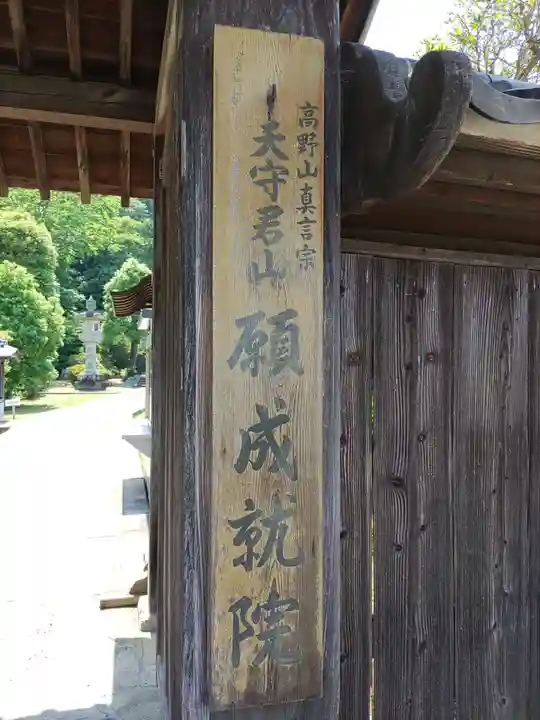 高野山真言宗
天守君山
願成就院